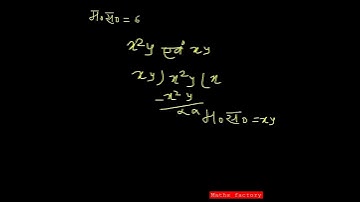 म० स० = 6
x²y एवं xy
xy ) x²y ( x
- x²y
म० स० = xy
Maths factory